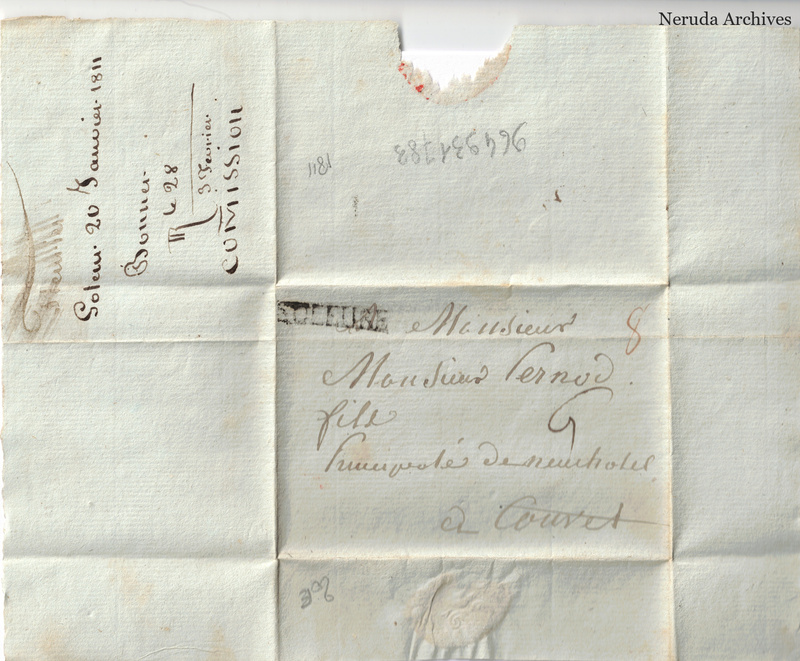 Neruda Archives
Soleur 20 Janvier 1811
Bonner
le 28
3 Fevrier
COMISSION
1811
964931783
SOLEURE
Monsieur
8
Monsieur Pernod.
fils
Principoté de neuchatel
a Couvet